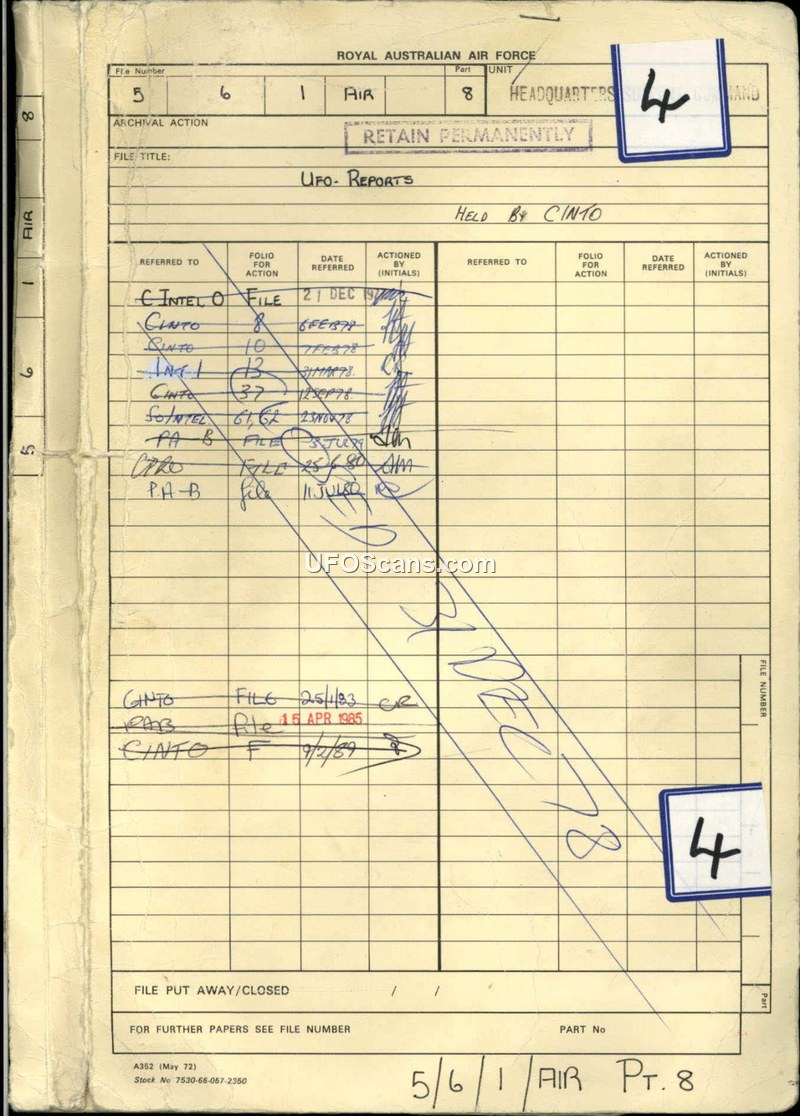 ROYAL AUSTRALIAN AIR FORCE
File Number Part UNIT
5 6 1 AIR 8 HEADQUARTERS
4
ARCHIVAL ACTION
RETAIN PERMANENTLY
FILE TITLE:
UFO- REPORTS
HELD BY CINTO
REFERRED TO FOLIO FOR ACTION DATE REFERRED ACTIONED BY (INITIALS) REFERRED TO FOLIO FOR ACTION DATE REFERRED ACTIONED BY (INITIALS)
C INTEL O FILE 21 DEC
CINTO 8 6FEB78
CINTO 10 7FEB78
INT 1 13 31MAR78
CINTO 37 12SEP78
SO INTEL 61, 62 23NOV78
PA-B FILE
CPRO FILE 25/6/80
P.A-B file 11 JUL80
CLOSED 31 DEC 78
UFOScans.com
CINTO FILE 25/1/83 CR
PAB file 15 APR 1985
CINTO F 9/2/89
4
FILE PUT AWAY/CLOSED / /
FOR FURTHER PAPERS SEE FILE NUMBER PART No
A352 (May 72)
Stock No 7530-66-057-2350
5/6/1/AIR PT. 8
8
AIR
1
6
5
FILE NUMBER
Part